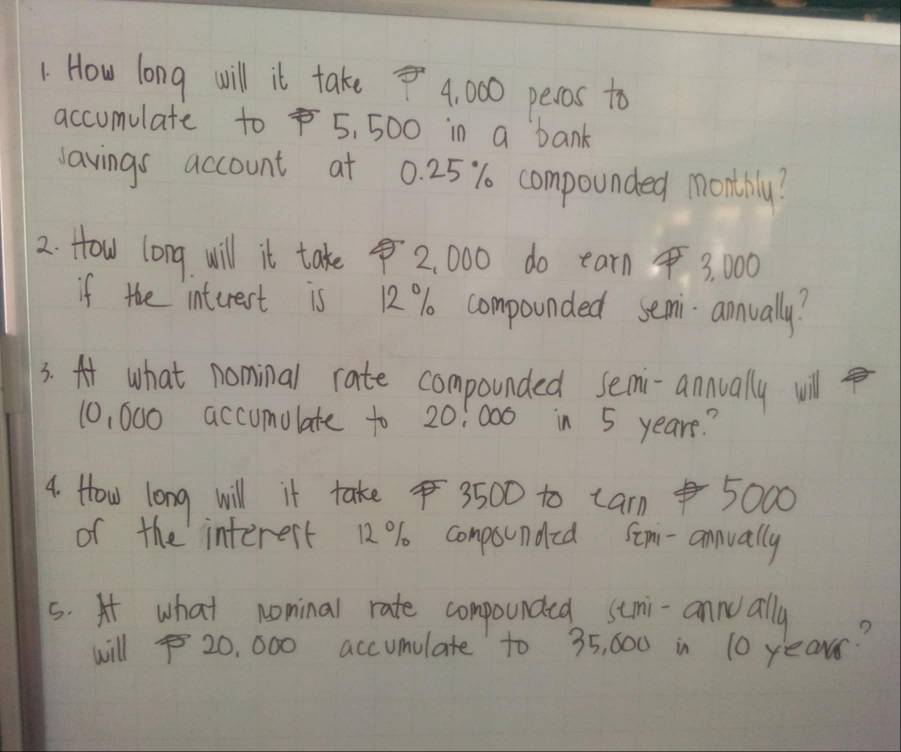 1. How long will it take ₱ 4,000 pesos to
accumulate to ₱ 5,500 in a bank
savings account at 0.25% compounded monthly?
2. How long will it take ₱ 2,000 do earn ₱ 3,000
if the interest is 12% compounded semi-annually?
3. At what nominal rate compounded semi-annually will ₱
10,000 accumulate to 20,000 in 5 years?
4. How long will it take ₱ 3500 to earn ₱ 5000
of the interest 12% compounded semi-annually
5. At what nominal rate compounded semi-annually
will ₱ 20,000 accumulate to 35,000 in 10 years?